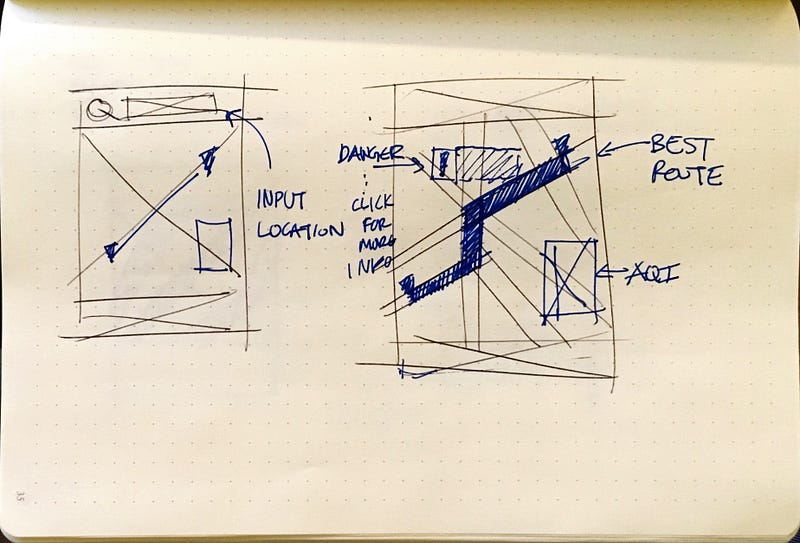 INPUT
LOCATION
DANGER
CLICK
FOR
MORE
INFO
BEST
ROUTE
AQI
35